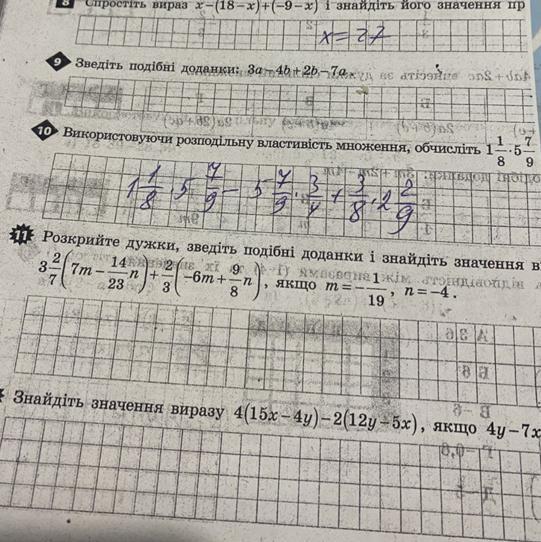 8 Спростіть вираз x−(18−x)+(−9−x) і знайдіть його значення пр
x = 27
9 Зведіть подібні доданки: 3a−4b+2b−7a.
10 Використовуючи розподільну властивість множення, обчисліть 1 1/8 · 5 7/9
1 1/8 · 5 7/9 − 5 7/9 · 3/4 + 3/8 · 2 2/9
11 Розкрийте дужки, зведіть подібні доданки і знайдіть значення в
3 2/7 (7m − 14/23 n) + 2/3 (−6m + 9/8 n), якщо m = −1/19, n = −4.
Знайдіть значення виразу 4(15x−4y)−2(12y−5x), якщо 4y−7x